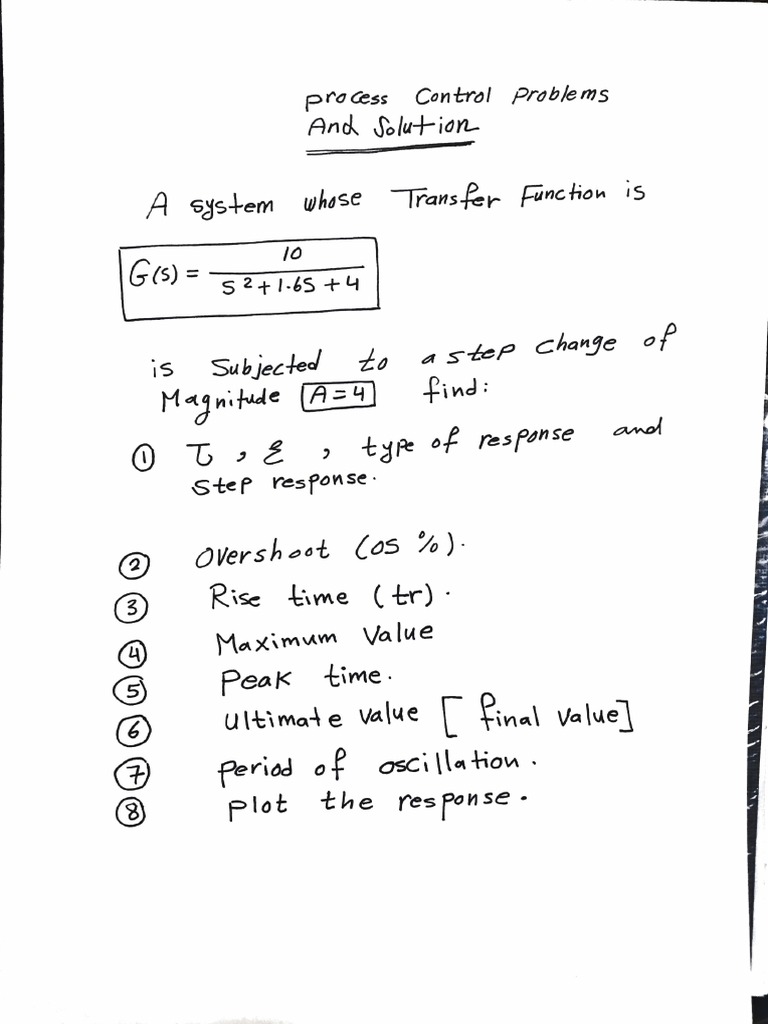 process Control Problems
And Solution
A system whose Transfer Function is
G(s) = 10 / s² + 1.6s + 4
is Subjected to a step change of
Magnitude A=4 find:
① τ, ξ, type of response and
step response.
② Overshoot (OS %).
③ Rise time (tr).
④ Maximum Value
⑤ Peak time.
⑥ Ultimate value [final value]
⑦ period of oscillation.
⑧ plot the response.